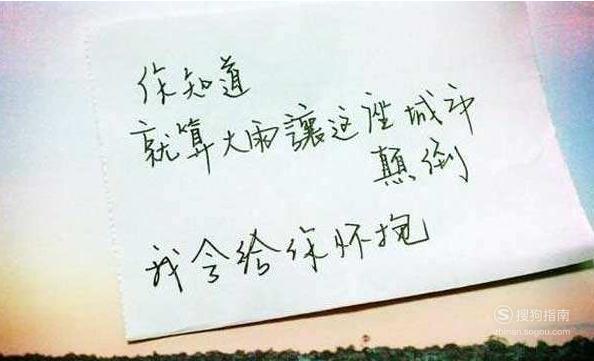 你知道
就算大雨讓这座城市
颠倒
我会给你怀抱
搜狗指南
zhinan.sogou.com